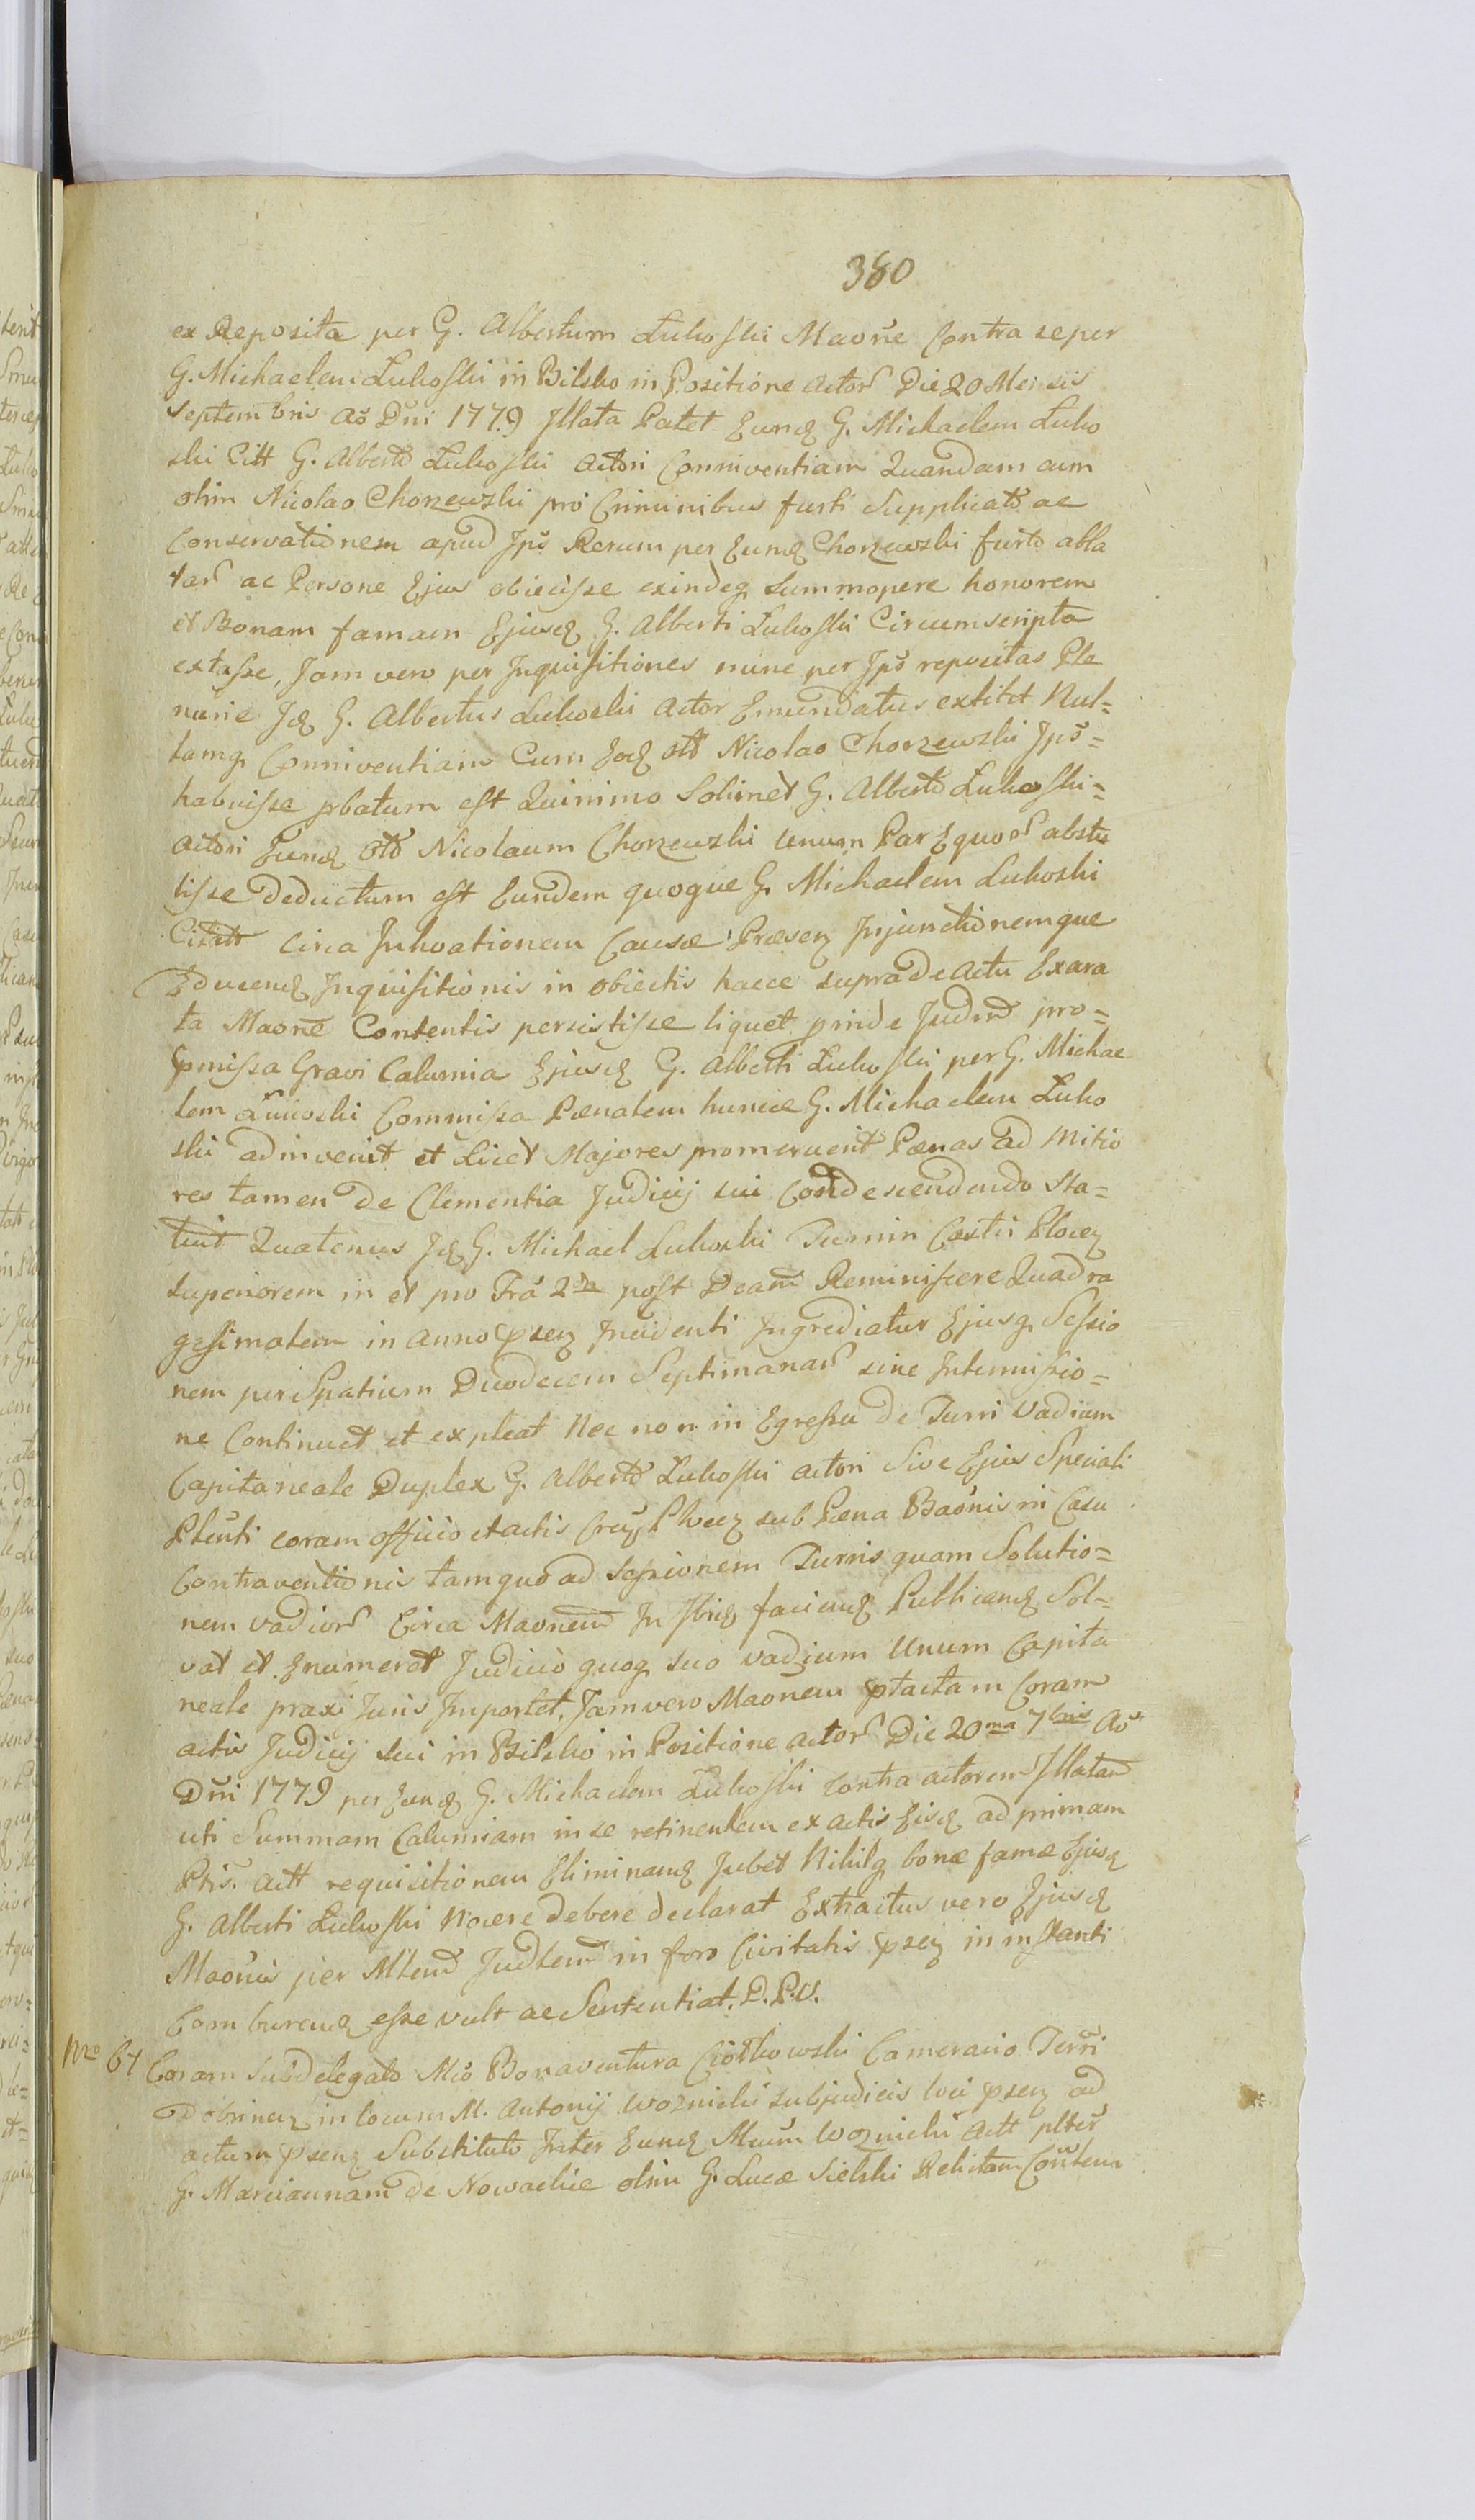 380
ex Reposita per G. Albertum Lukoski Maōne Contra se per
G. Michaelem Lukoski in Bilsko in Positione Actor Die 20 Mensis
Septembris Aō Dni 1779 Illata Patet Eundq G. Michaelem Luko
ski Citt G. Alberto Lukoski Actori Conniventiam Quandam cum
olim Nicolao Chorzewski pro Criminibus furti Supplicato ac
Conservationem apud Ips Rerum per Eumq Chorzewski furto abla
tar ac Persone Ejus obiecisse exindeq summopere honorem
et Bonam famam Ejusq G. Alberti Lukoski Circumscripta
extasse, Jam vero per Inquisitiones nunc per Ips repositas Ple
narie Jq G. Albertus Lukoski Actor Emundatus extitit Nul=
lamq Conniventiam Cum Eoq Nicolao Chorzewski Ips=
habuisse pbatum est Quinimo Solimet G. Alberto Lukoski=
Actori Eundq Nicolaum Chorzewski Unum Par Equor abstu
lisse Deductum est Eundem quoque G. Michaelem Lukoski
Citatt circa Inhoationem Causæ Præsen Injunctionemque
Educenq Inquisitionis in obiectis haece supra de Actu Exara
ta Maone Contentis perscistisse liquet proinde Judm pro=
pmissa Gravi Calumia Ejusq G. Alberti Lukoski per G. Michae
lem Lukoski Commissa Pœnalem huncce G. Michaelem Luko
ski adinvenit et Licet Majores promeruerit Pœnas ad Mitio
res tamen de Clementia Judicij sui Condescendendo Sta=
tuit Quatenus Jq G. Michael Lukoski Turrim Castri Plocen
superiorem in et pro Fra 2da post Dcam Reminiscere Quadra
gesimalem in anno psen Incidenti Ingrediatur Ejusq Sessio
nem per Spatium Duodecem Septimanar sine Intermissio=
ne Continuet et expleat Nec non in Egressu de Turri Vadium
Capitaneale Duplex G. Alberto Lukoski actori Sive Ejus Speciali
Plenti coram officio et actis Plocen sub Pœna Baōnis in Casu
Contraventionis tam quo ad sessionem Turris quam Solutio=
nem vadior Circa Maonem In faciendq Publicandq Sol=
vat et Enumeret Judicio quoq suo vadium Unum Capita
neale praxi Juris Importet, Jam vero Maonem ptactam Coram
actis Judicij sui in Bilsko in Positione actor Die 20ma 7bris Aō
Dni 1779 per Eundq G. Michaelem Lukoski Contra actorem Illatam
uti Summam Calumiam in se retinentem ex actis Eisq ad primam
Ptis Actt requisitionem Eliminandq Jubet Nihilq bonæ famæ Ejusq
G. Alberti Lukoski Nocere debere declarat Extractus vero Ejusq
Maonis per Mlem Judlem in foro Civitatis psen in instanti
Comburendq esse vult ac Sententiat. D.P.U.
Nro 67 Coram Subdelegato Mco Bonaventura Ciołkowski Camerario Terri
Dobrinen in locum M. Antonij Woznicki subjudicis loci psen ad
actum psenq Substituto Inter Eundq Mcum Woznicki Actt
G. Mariannam de Nowackie olim G. Lucæ Sielski Relictam